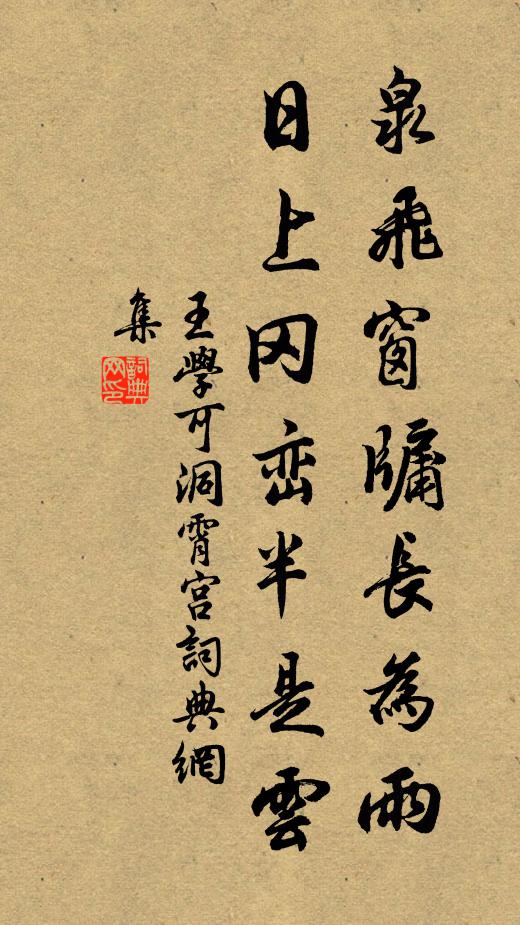 泉飛窗牖長為雨
日上冈峦半是雲
王學可洞霄宫詞典網
集
詞典网印